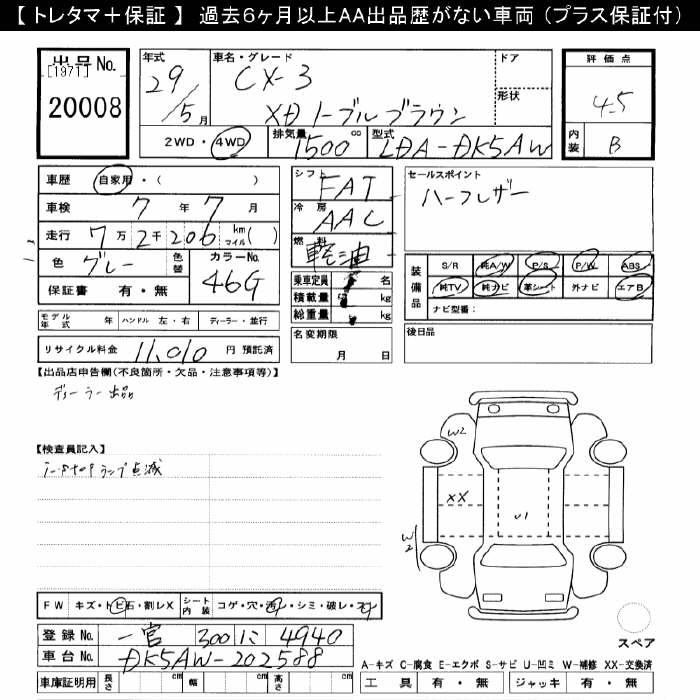 【 トレタマ＋保証 】 過去6ヶ月以上AA出品歴がない車両（プラス保証付）
出品No. [1971] 20008
年式 29/5月
車名・グレード CX-3 XD ノーブルブラウン
ドア
形状
評価点 4.5
内装 B
2WD・4WD 排気量 1500 cc 型式 LDA-DK5AW
車歴 自家用・( )
車検 7年7月
走行 7万2千206 km マイル( )
色 グレー 色替 カラーNo. 46G
保証書 有・無
シフト FAT
冷房 AAC
燃料 軽油
乗車定員 名
積載量 kg
総重量 kg
セールスポイント
ハーフレザー
装備品 S/R 純A/W P/S P/W ABS
純TV 純ナビ 革シート 外ナビ エアB
ナビ型番：
モデル年式 年 ハンドル 左・右 ディーラー・並行
リサイクル料金 11,010 円 預託済
名変期限 月 日
後日品
【出品店申告欄(不良箇所・欠品・注意事項等)】
ディーラー出品
【検査員記入】
ランプ点滅
W2
XX
U1
W2
FW キズ・トビ石・割レX シート内装 コゲ・穴・汚レ・シミ・破レ・スレ
登録No. 一宮 300 に 4940
車台No. DK5AW-202588
車庫証明用 長さ cm 幅 cm 高さ cm
スペア
A-キズ C-腐食 E-エクボ S-サビ U-凹ミ W-補修 XX-交換済
工具 有・無 ジャッキ 有・無